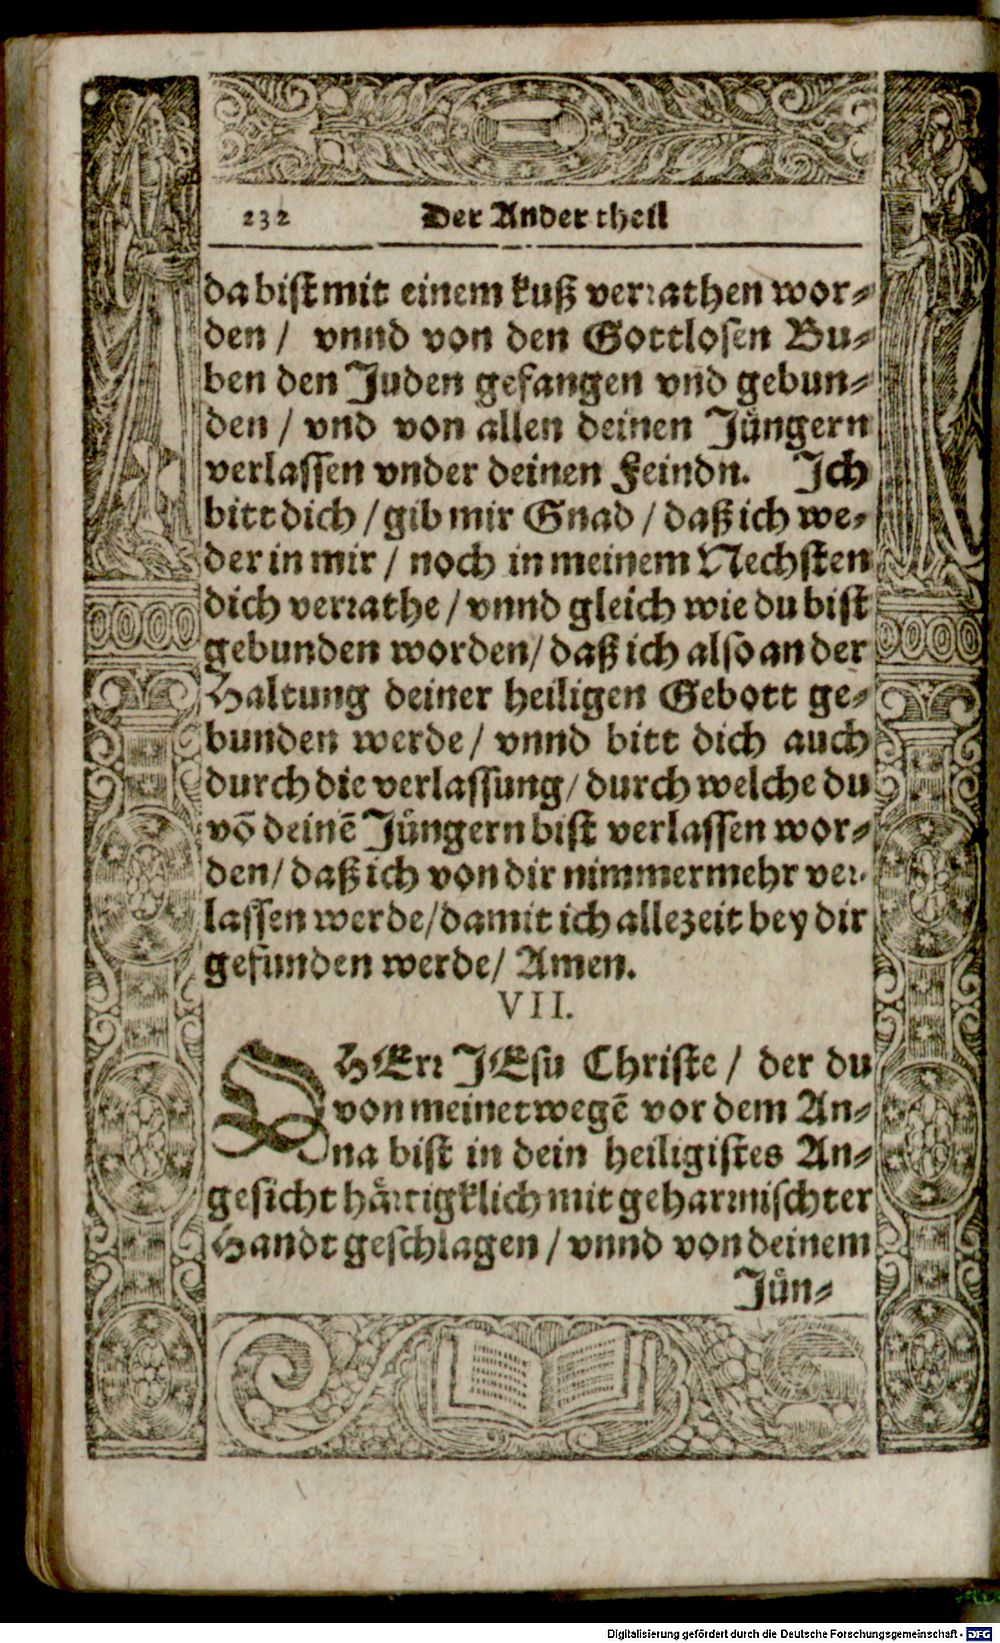 232 Der Ander theil
da bist mit einem kuß verꝛathen wor⸗
den / vnnd von den Gottlosen Bu⸗
ben den Juden gefangen vnd gebun⸗
den / vnd von allen deinen Jüngern
verlassen vnder deinen Feindn. Ich
bitt dich / gib mir Gnad / daß ich we⸗
der in mir / noch in meinem Nechsten
dich verꝛathe / vnnd gleich wie du bist
gebunden worden / daß ich also an der
Haltung deiner heiligen Gebott ge⸗
bunden werde / vnnd bitt dich auch
durch die verlassung / durch welche du
võ deinẽ Jüngern bist verlassen wor⸗
den / daß ich von dir nimmermehr ver⸗
lassen werde / damit ich allezeit bey dir
gefunden werde / Amen.
VII.
O HErꝛ JEsu Christe / der du
von meinetwegẽ vor dem An⸗
na bist in dein heiligistes An⸗
gesicht härtigklich mit geharnischter
Handt geschlagen / vnnd von deinem
Jün⸗
Digitalisierung gefördert durch die Deutsche Forschungsgemeinschaft - DFG